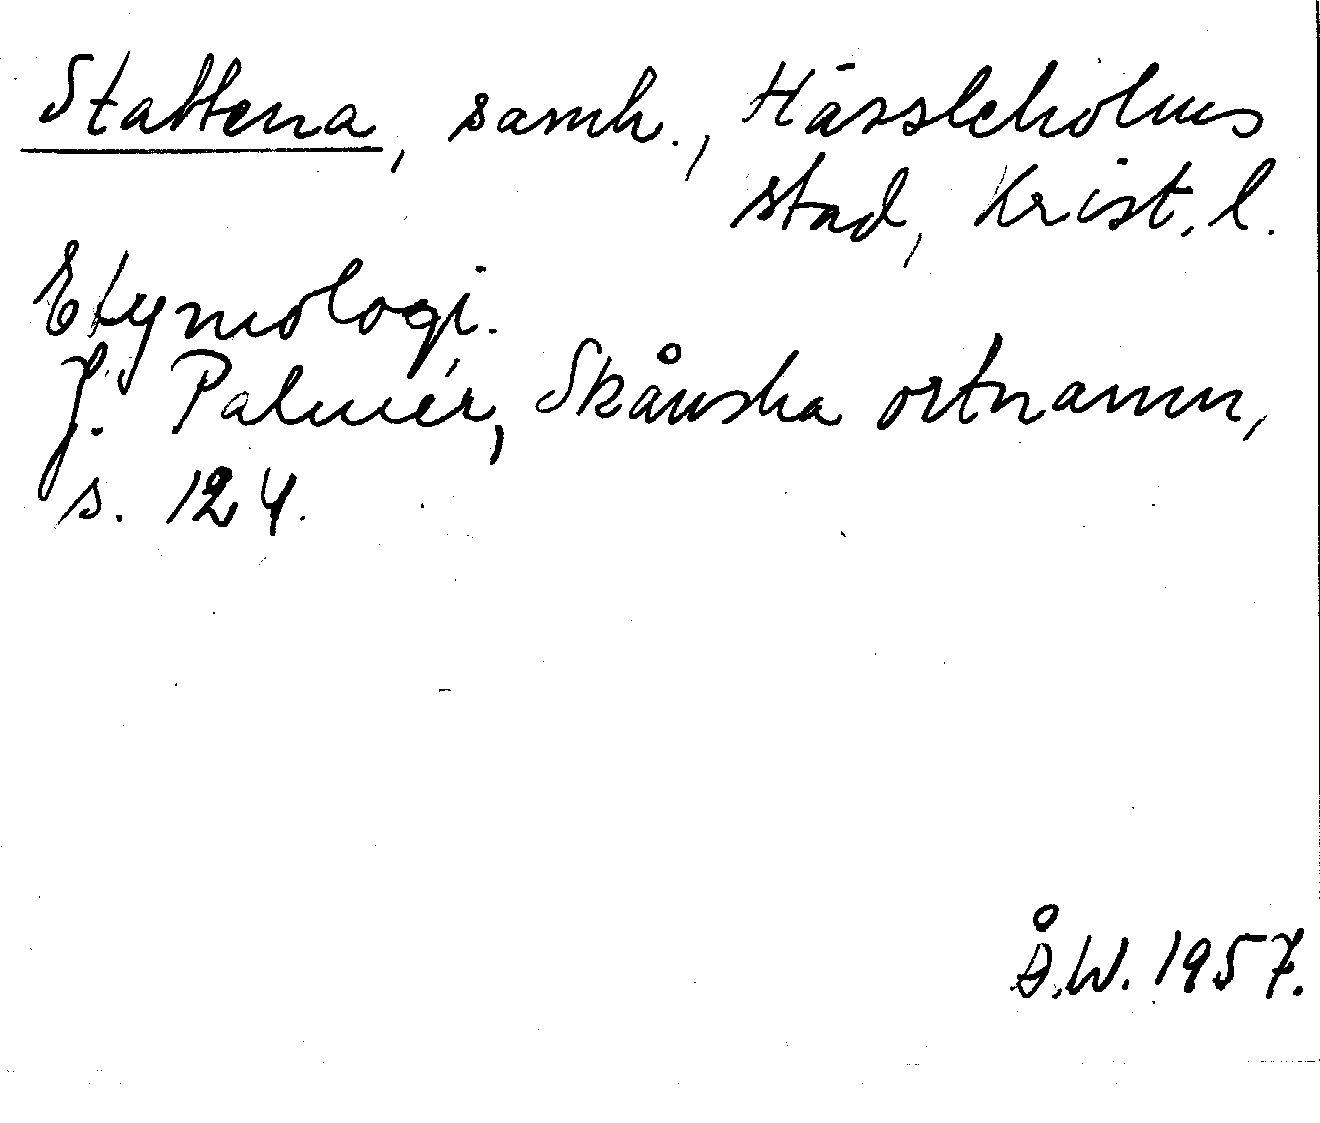 Stattena, samh., Hässleholms
stad, Krist. l.
Etymologi.
J. Palmér, Skånska ortnamn,
s. 124.
Å.W. 1957.